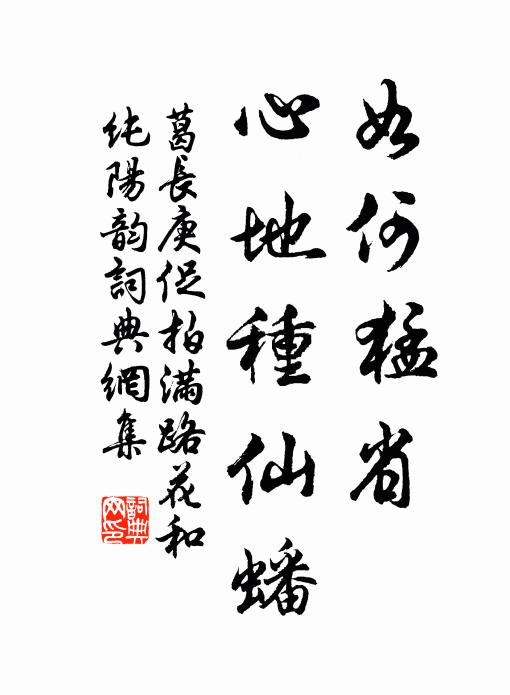 如何猛省
心地種仙蟠
葛長庚促拍滿路花和
純陽韵詞典網集
詞典
网印